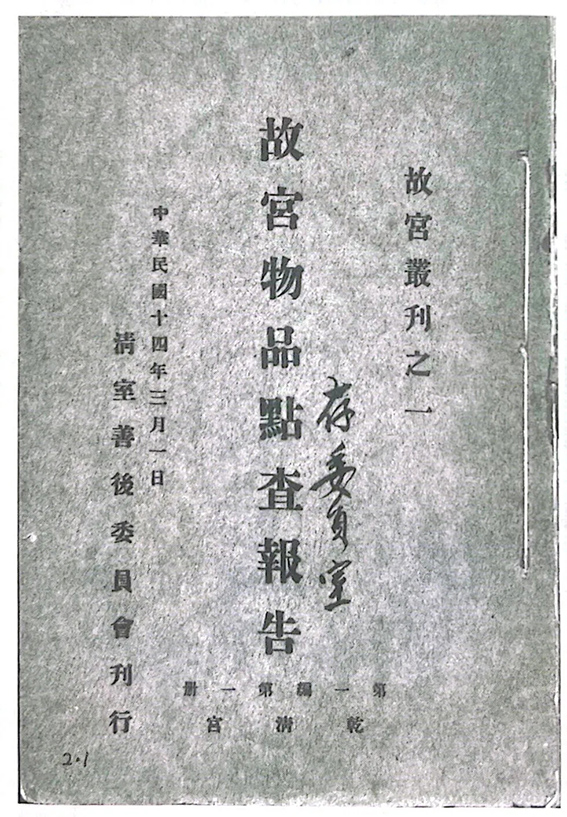 故宮叢刊之一
存委員室
故宮物品點查報告
第一編第一册
乾清宮
中華民國十四年三月一日
清室善後委員會刊行
2.1